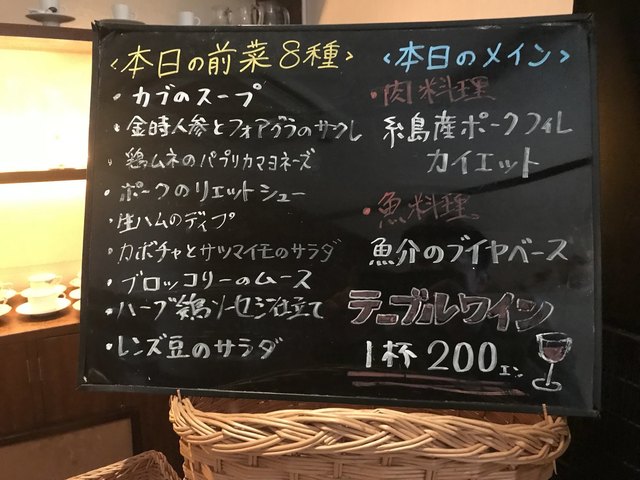 <本日の前菜8種>
・カブのスープ
・金時人参とフォアグラのサブレ
・鶏ムネのパプリカマヨネーズ
・ポークのリエットシュー
・生ハムのディプ
・カボチャとサツマイモのサラダ
・ブロッコリーのムース
・ハーブ鶏ソーセージ仕立て
・レンズ豆のサラダ
<本日のメイン>
・肉料理
糸島産ポークフィレ
カイエット
・魚料理
魚介のブイヤベース
テーブルワイン
1杯 200エン